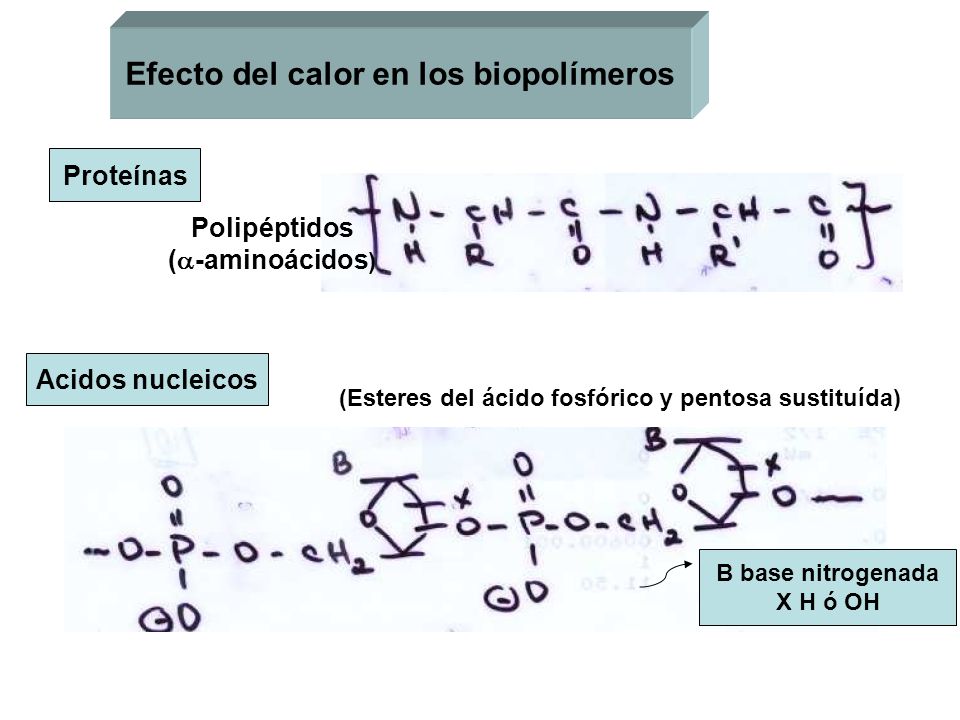 Efecto del calor en los biopolímeros
Proteínas
Polipéptidos
(α-aminoácidos)
N - CH - C - N - CH - C
H R O H R' O
Acidos nucleicos
(Esteres del ácido fosfórico y pentosa sustituída)
B
B
O
O
X
X
O
O
O-P-O-CH2
O-P-O-CH2
O
⊖O
⊖O
B base nitrogenada
X H ó OH